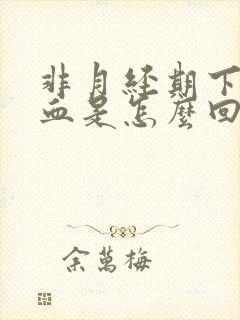 非月經期下
血是怎麼回
余萬梅